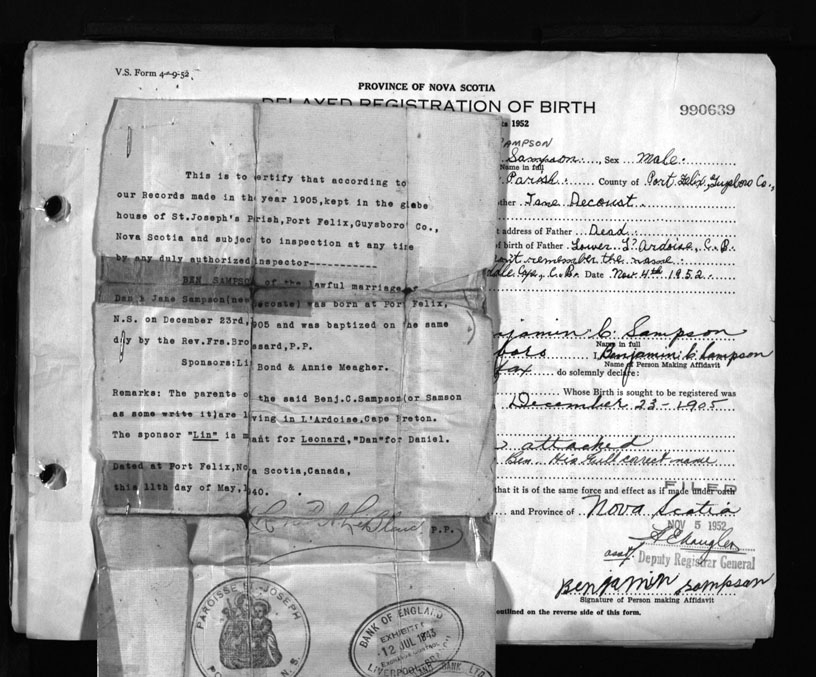 V.S. Form 4-9-52
PROVINCE OF NOVA SCOTIA
DELAYED REGISTRATION OF BIRTH
990639
1952
This is to certify that according to
our Records made in the year 1905, kept in the glebe
house of St.Joseph's Parish, Port Felix, Guysboro Co.,
Nova Scotia and subject to inspection at any time
by any duly authorized inspector-----------
BEN SAMPSON of the lawful marriage
Dan & Jane Sampson(nee Decoste) was born at Port Felix,
N.S. on December 23rd, 1905 and was baptized on the same
day by the Rev.Frs.Brossard, P.P.
Sponsors: Lin Bond & Annie Meagher.
Remarks: The parents of the said Benj.C.Sampson(or Samson
as some write it)are living in L'Ardoise, Cape Breton.
The sponsor "Lin" is meant for Leonard, "Dan" for Daniel.
Dated at Port Felix, Nova Scotia, Canada,
this 11th day of May, 1940.
P.P.
PAROISSE ST. JOSEPH
N.S.
BANK OF ENGLAND
EXHIBITED
12 JUL 1943
LIVERPOOL
BANK LTD
SAMPSON
Sampson, Sex Male.
Name in full
Parish. County of Port Felix, Guysboro Co.,
Jane Decoust
address of Father Dead
of birth of Father Lower L'Ardoise, C.B.
remember the name
C.B. Date Nov. 4th 1952.
Benjamin C. Sampson
Name in full
I Benjamin C. Sampson
Name of Person Making Affidavit
do solemnly declare:
Whose Birth is sought to be registered was
December 23-1905
attacked
Ben His Full corect name
that it is of the same force and effect as if made under oath
FILED
and Province of Nova Scotia
NOV 5 1952
asst. Deputy Registrar General
Benjamin Sampson
Signature of Person making Affidavit
outlined on the reverse side of this form.